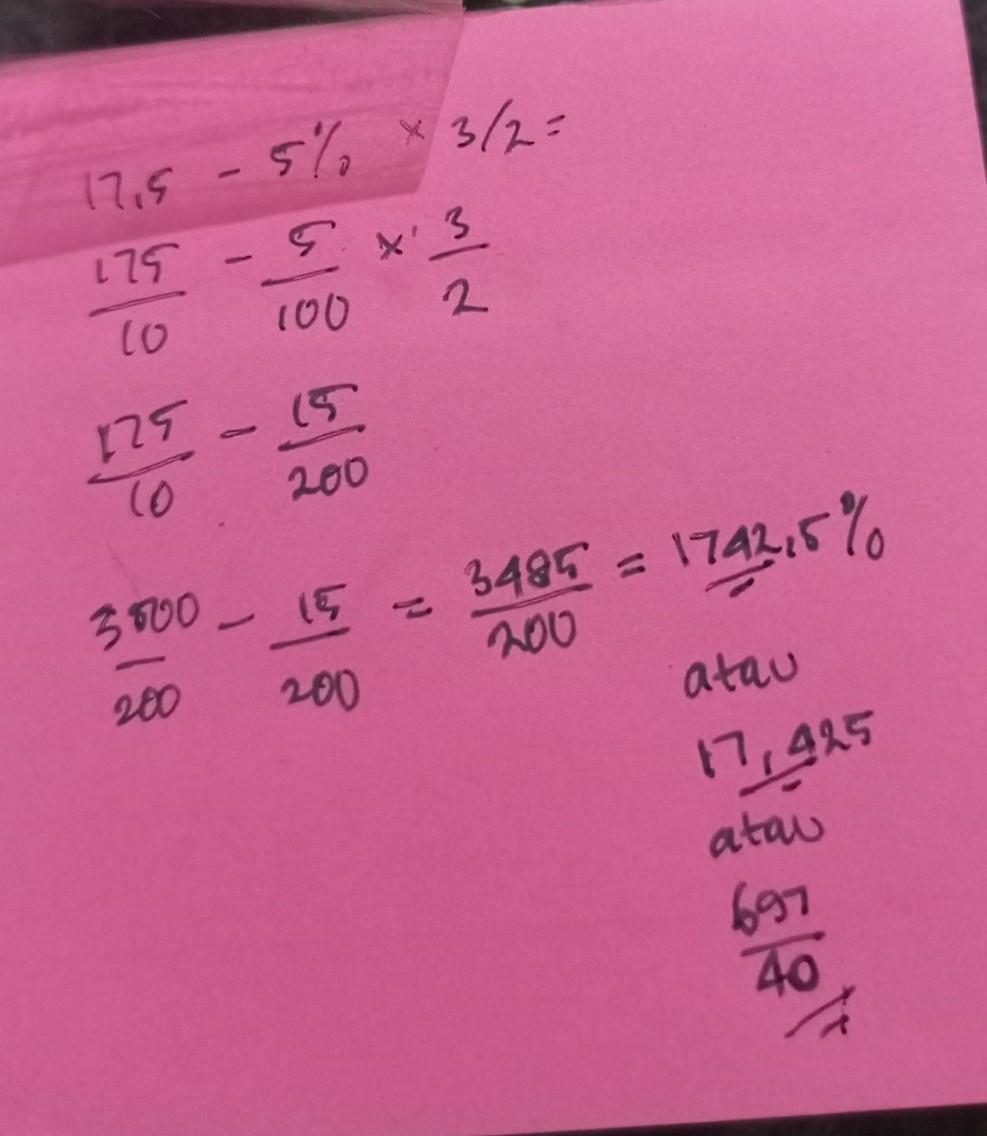 17,5 - 5% × 3/2 =
175/10 - 5/100 × 3/2
175/10 - 15/200
3500/200 - 15/200 = 3485/200 = 1742,5%
atau
17,425
atau
697/40